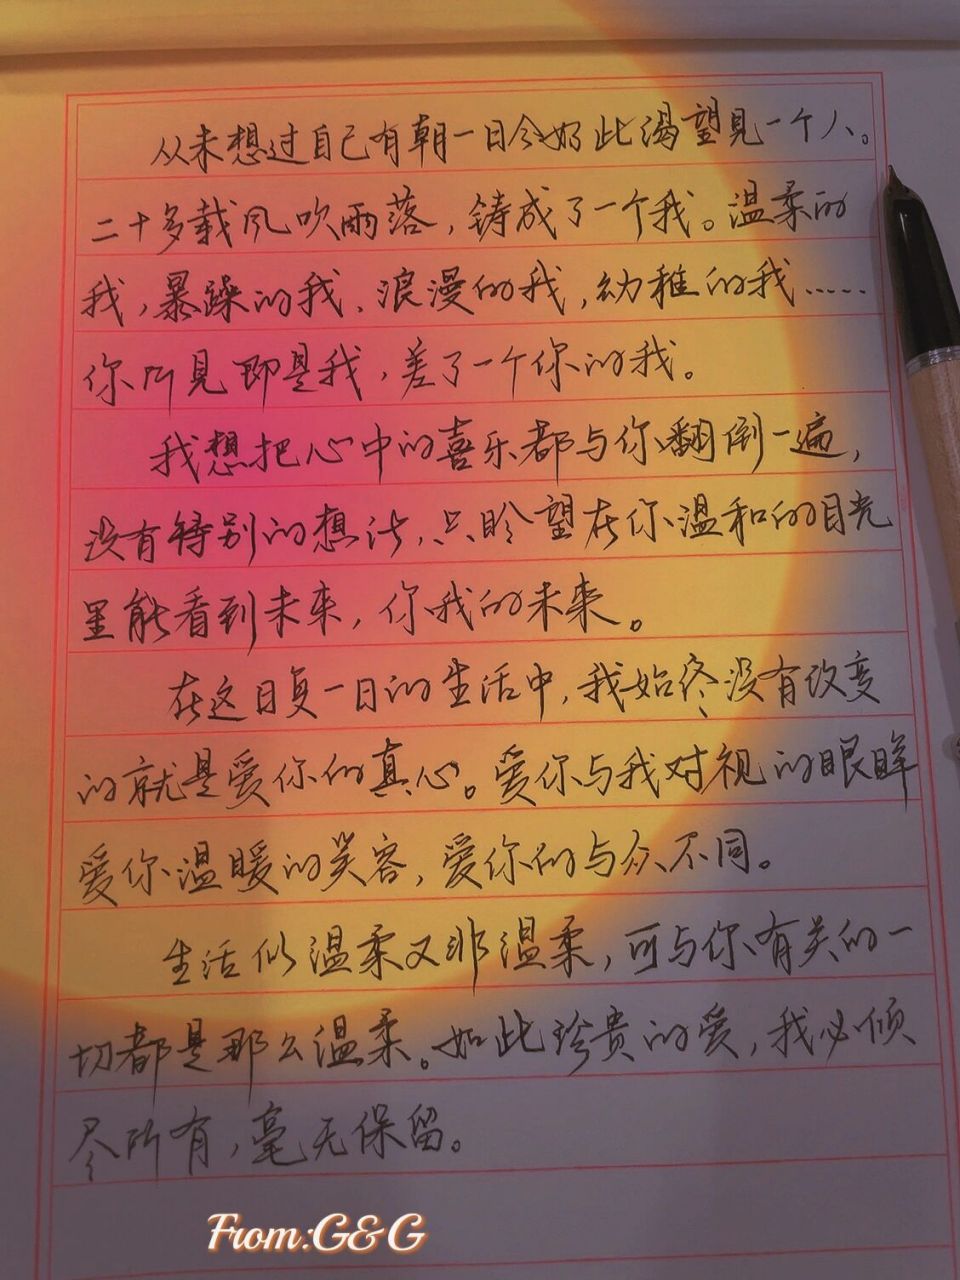 从未想过自己有朝一日会如此渴望见一个人。
二十多载风吹雨落，铸成了一个我。温柔的
我，暴躁的我、浪漫的我，幼稚的我……
你所见即是我，差了一个你的我。
我想把心中的喜乐都与你翻倒一遍，
没有特别的想法，只盼望在你温和的目光
里能看到未来，你我的未来。
在这日复一日的生活中，我始终没有改变
的就是爱你的真心。爱你与我对视的眼眸
爱你温暖的笑容，爱你的与众不同。
生活似温柔又非温柔，可与你有关的一
切都是那么温柔。如此珍贵的爱，我必倾
尽所有，毫无保留。
From:G&G